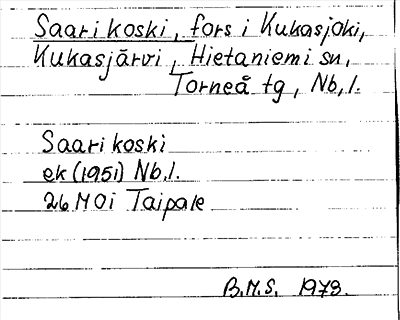 Saarikoski, fors i Kukasjoki,
Kukasjärvi, Hietaniemi sn,
Torneå tg, Nb, l.
Saarikoski
ek (1951) Nb. l.
26 M 0i Taipale
B.M.S. 1973.